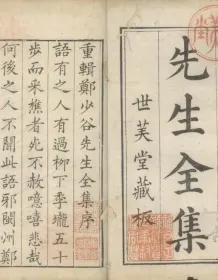 先生全集
世芙堂藏板
重輯鄭少谷先生全集序
語有之人有過柳下季壠五十
步而采樵者死不赦噫嘻悲哉
何後之人不聞此語邪閩州鄭